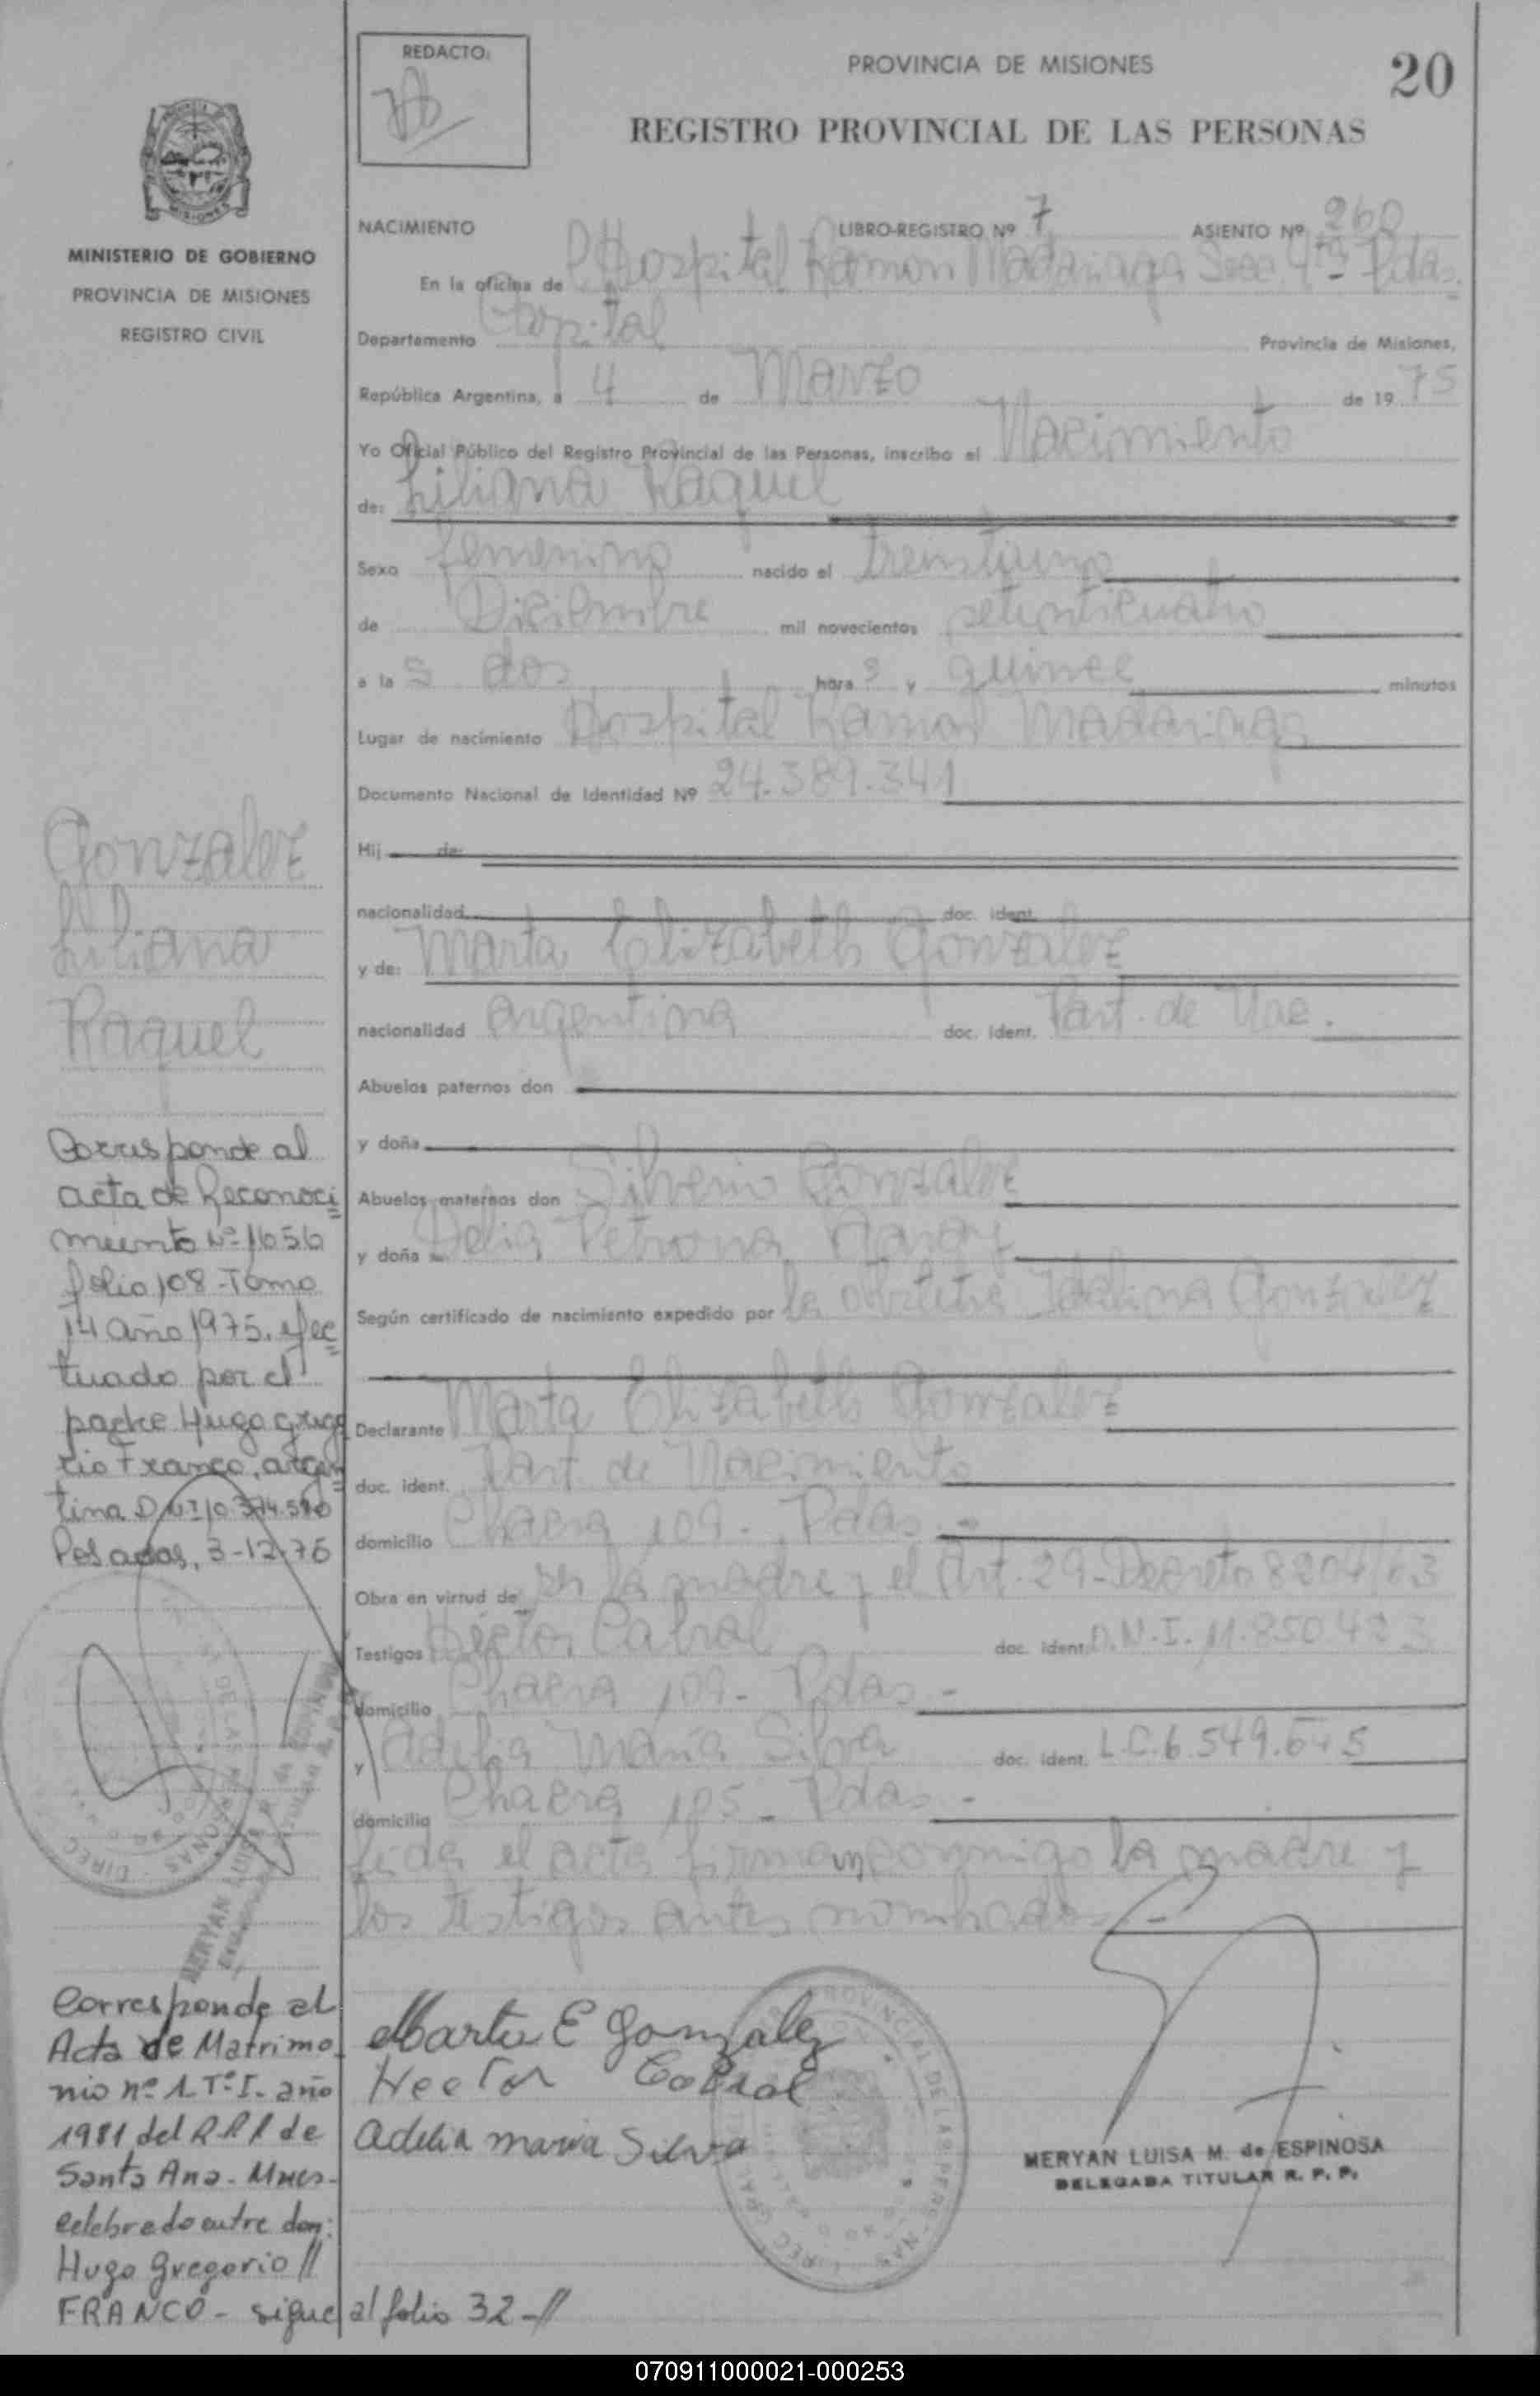 REDACTO:
PROVINCIA DE MISIONES
20
REGISTRO PROVINCIAL DE LAS PERSONAS
MINISTERIO DE GOBIERNO
PROVINCIA DE MISIONES
REGISTRO CIVIL
NACIMIENTO LIBRO-REGISTRO Nº 7 ASIENTO Nº 260
En la oficina de Hospital Ramon Madariaga Secc. 4ta Pdas.
Departamento Capital Provincia de Misiones,
República Argentina, a 4 de Marzo de 1975
Yo Oficial Público del Registro Provincial de las Personas, inscribo el Nacimiento
de: Liliana Raquel
Sexo femenino nacido el treintiuno
de Diciembre mil novecientos setenticuatro
a la s dos hora s y quince minutos
Lugar de nacimiento Hospital Ramon Madariaga
Documento Nacional de Identidad Nº 24.389.341
Hij de:
nacionalidad doc. ident.
y de: Marta Elizabeth Gonzalez
nacionalidad argentina doc. ident. Part. de Nac.
Abuelos paternos don
y doña
Abuelos maternos don Silverio Gonzalez
y doña Delia Petrona
Según certificado de nacimiento expedido por la obstetra Idalina Gonzalez
Declarante Marta Elizabeth Gonzalez
doc. ident. Part. de Nacimiento
domicilio Chacra 109 - Pdas -
Obra en virtud de ser la madre y el Art. 29 - Decreto 8204/63
Testigos Héctor Cabral doc. ident. D.N.I. 11.850.423
domicilio Chacra 109 - Pdas -
y Adelia María Silva doc. ident. L.C. 6.549.645
domicilio Chacra 105 - Pdas -
Leída el acta firman conmigo la madre y
los testigos antes nombrados -
Marta E Gonzalez
Hector Cabral
Adelia maria Silva
MERYAN LUISA M. de ESPINOSA
DELEGADA TITULAR R. P. P.
Gonzalez
Liliana
Raquel
Corresponde al
acta de Reconoci
miento Nº 1656
folio 108 - Tomo
14 año 1975. efec
tuado por el
padre Hugo Grego
rio Franco, argen
tina D.N.I 10.374.590
Posadas, 3-12-76
Corresponde al
Acta de Matrimo
nio nº 1 Tº I - año
1981 del R P P de
Santa Ana - Mnes -
celebrado entre don:
Hugo Gregorio //
FRANCO - sigue al folio 32 - //
070911000021-000253